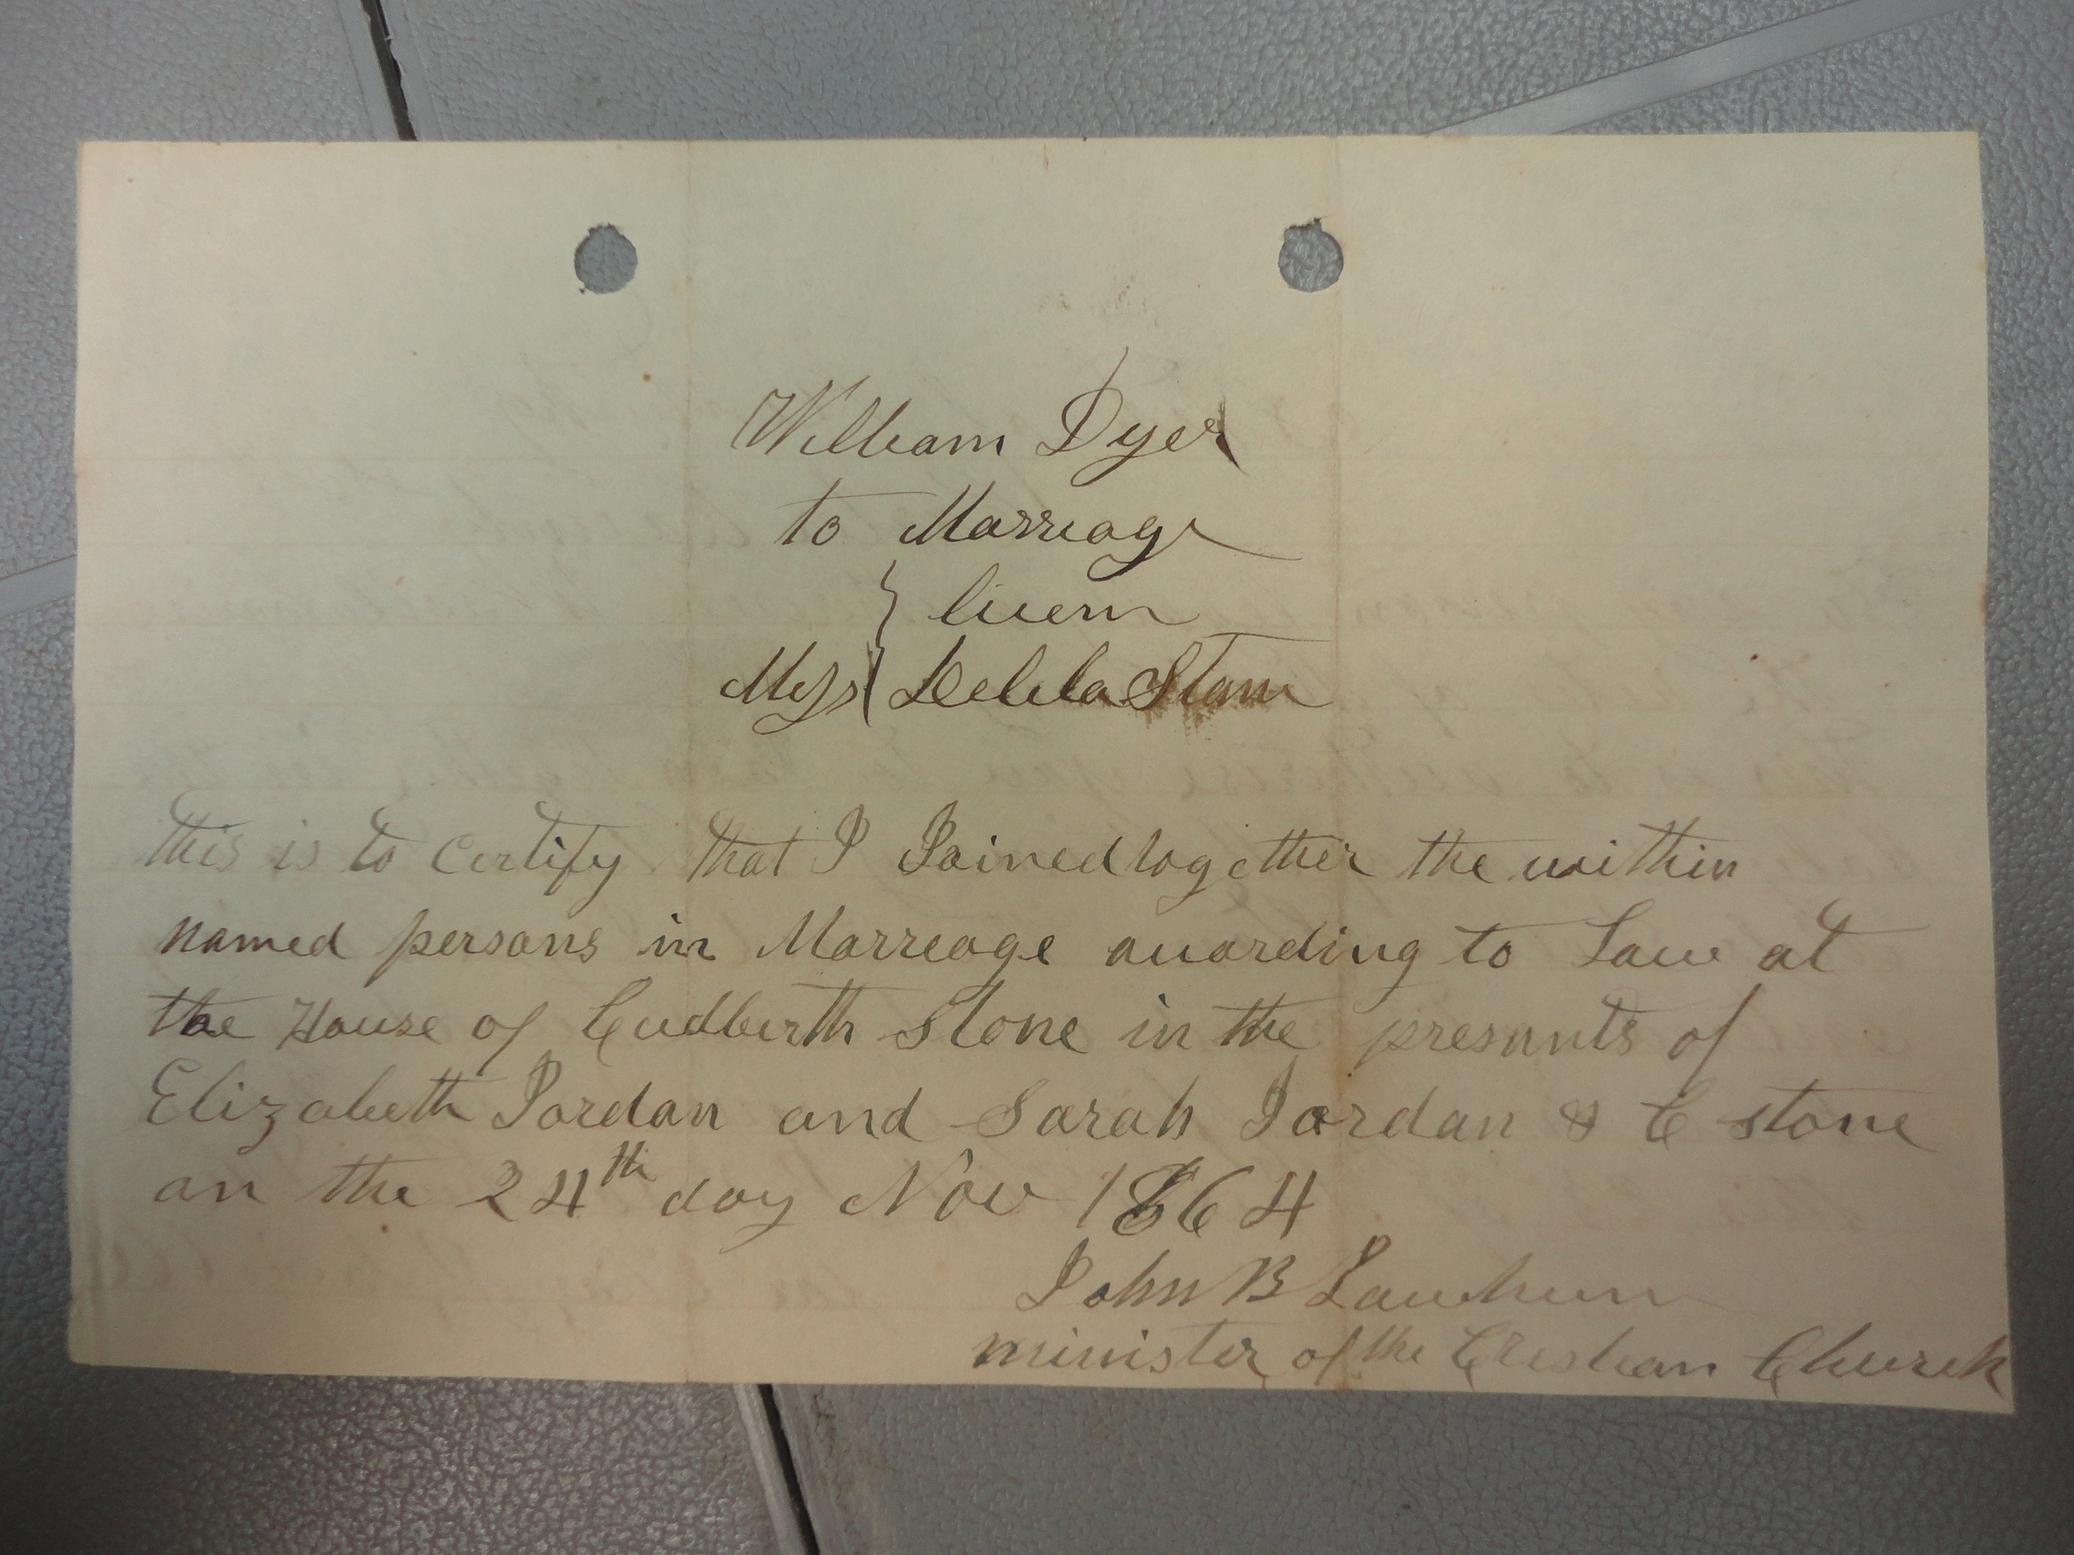 William Dyer
to Marreage
} licern
Miss { Delila Stone
this is to certify that I Joined together the within
named persons in Marreage acording to Law at
the House of Cudberth Stone in the presunts of
Elizabeth Jordan and Sarah Jordan & C stone
on the 24th day Nov 1864
John B Lawhun
minister of the Crestian Church